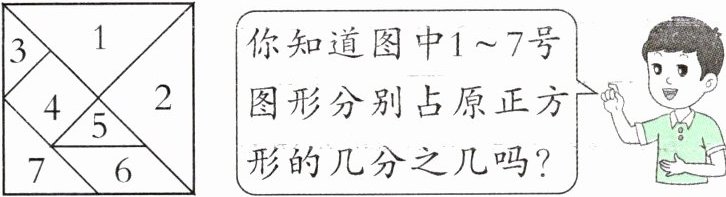 1
2
3
4
5
6
7
你知道图中1～7号
图形分别占原正方
形的几分之几吗?